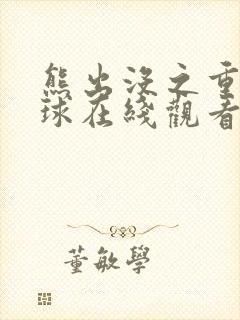 熊出没之重
球在綫觀看
董敏學